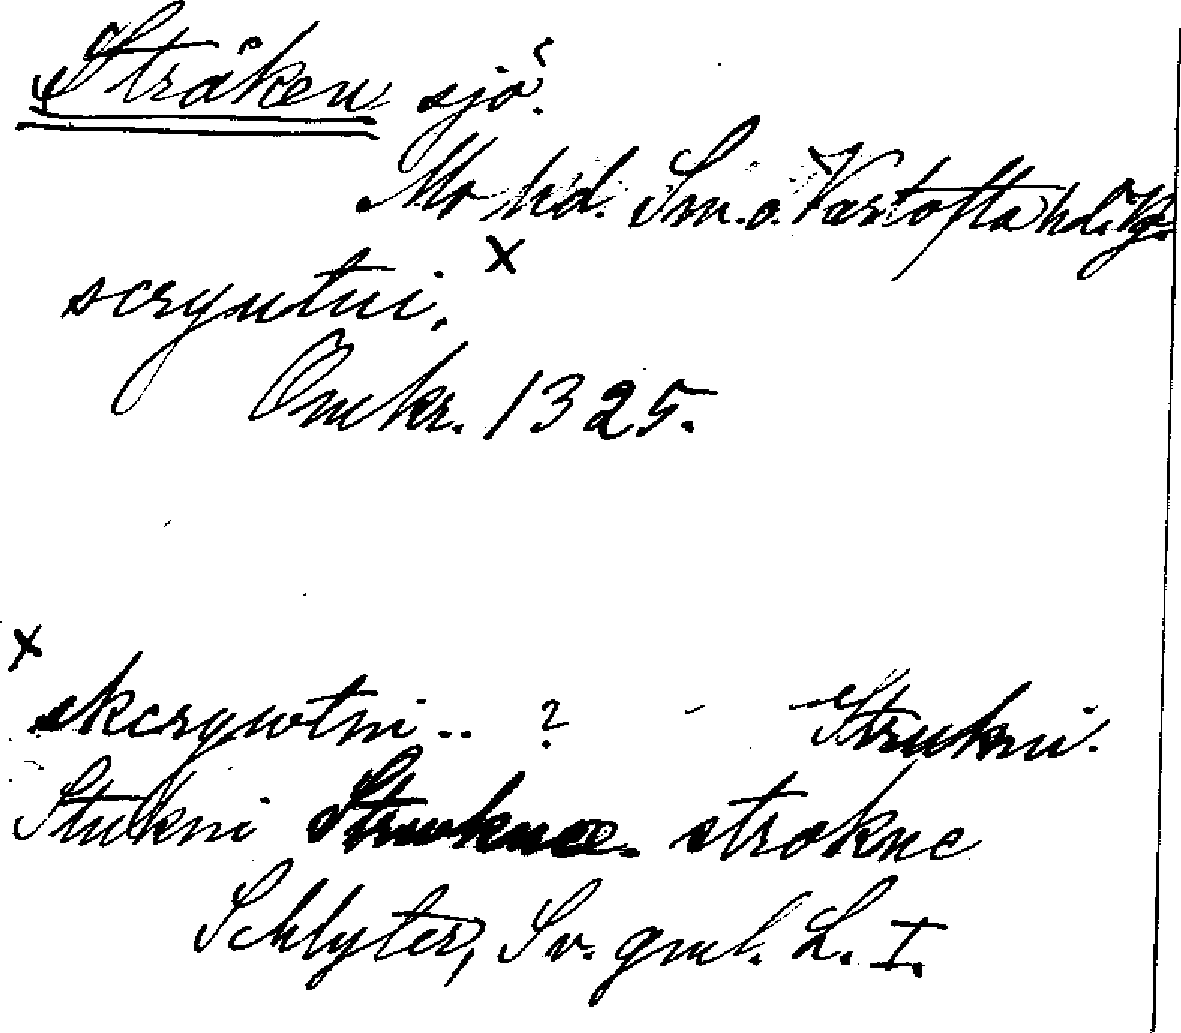 Stråken sjö.
Mo hd. Sm. o. Vartofta hd. Vg.
scryutni. x
Omkr. 1325.
x
skcrywtni.. ? - Strukni.
Stukni Struvknœ. strokne
Schlyter, Sv. gml. L. I.